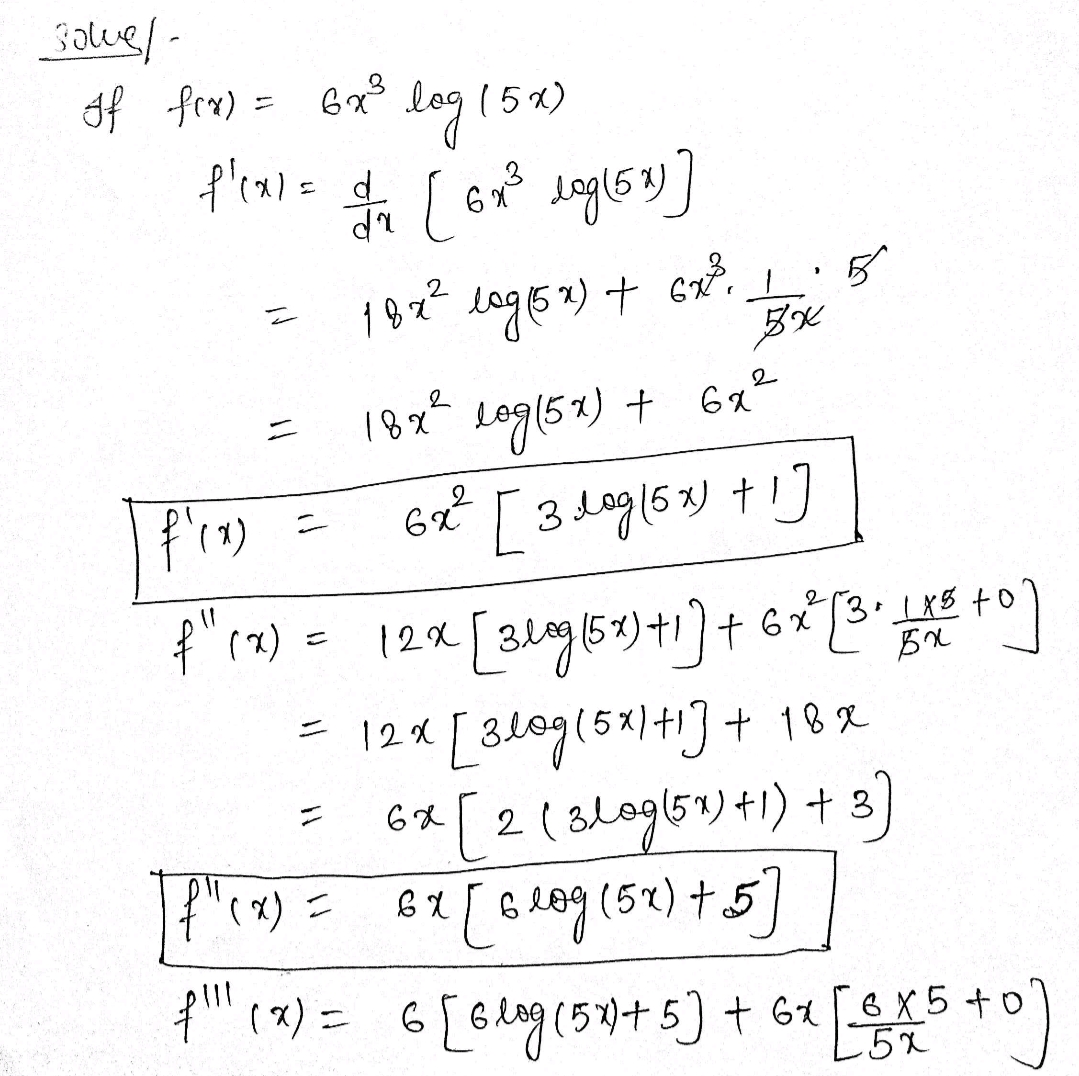 Solve/-
If f(x) = 6x³ log(5x)
f'(x) = d/dx [6x³ log(5x)]
= 18x² log(5x) + 6x³. 1/5x . 5
= 18x² log(5x) + 6x²
f'(x) = 6x² [3 log(5x) + 1]
f''(x) = 12x [3log(5x)+1] + 6x² [3. 1×5/5x + 0]
= 12x [3log(5x)+1] + 18x
= 6x [2(3log(5x)+1) + 3]
f''(x) = 6x [6log(5x) + 5]
f'''(x) = 6[6log(5x)+5] + 6x [6×5/5x + 0]